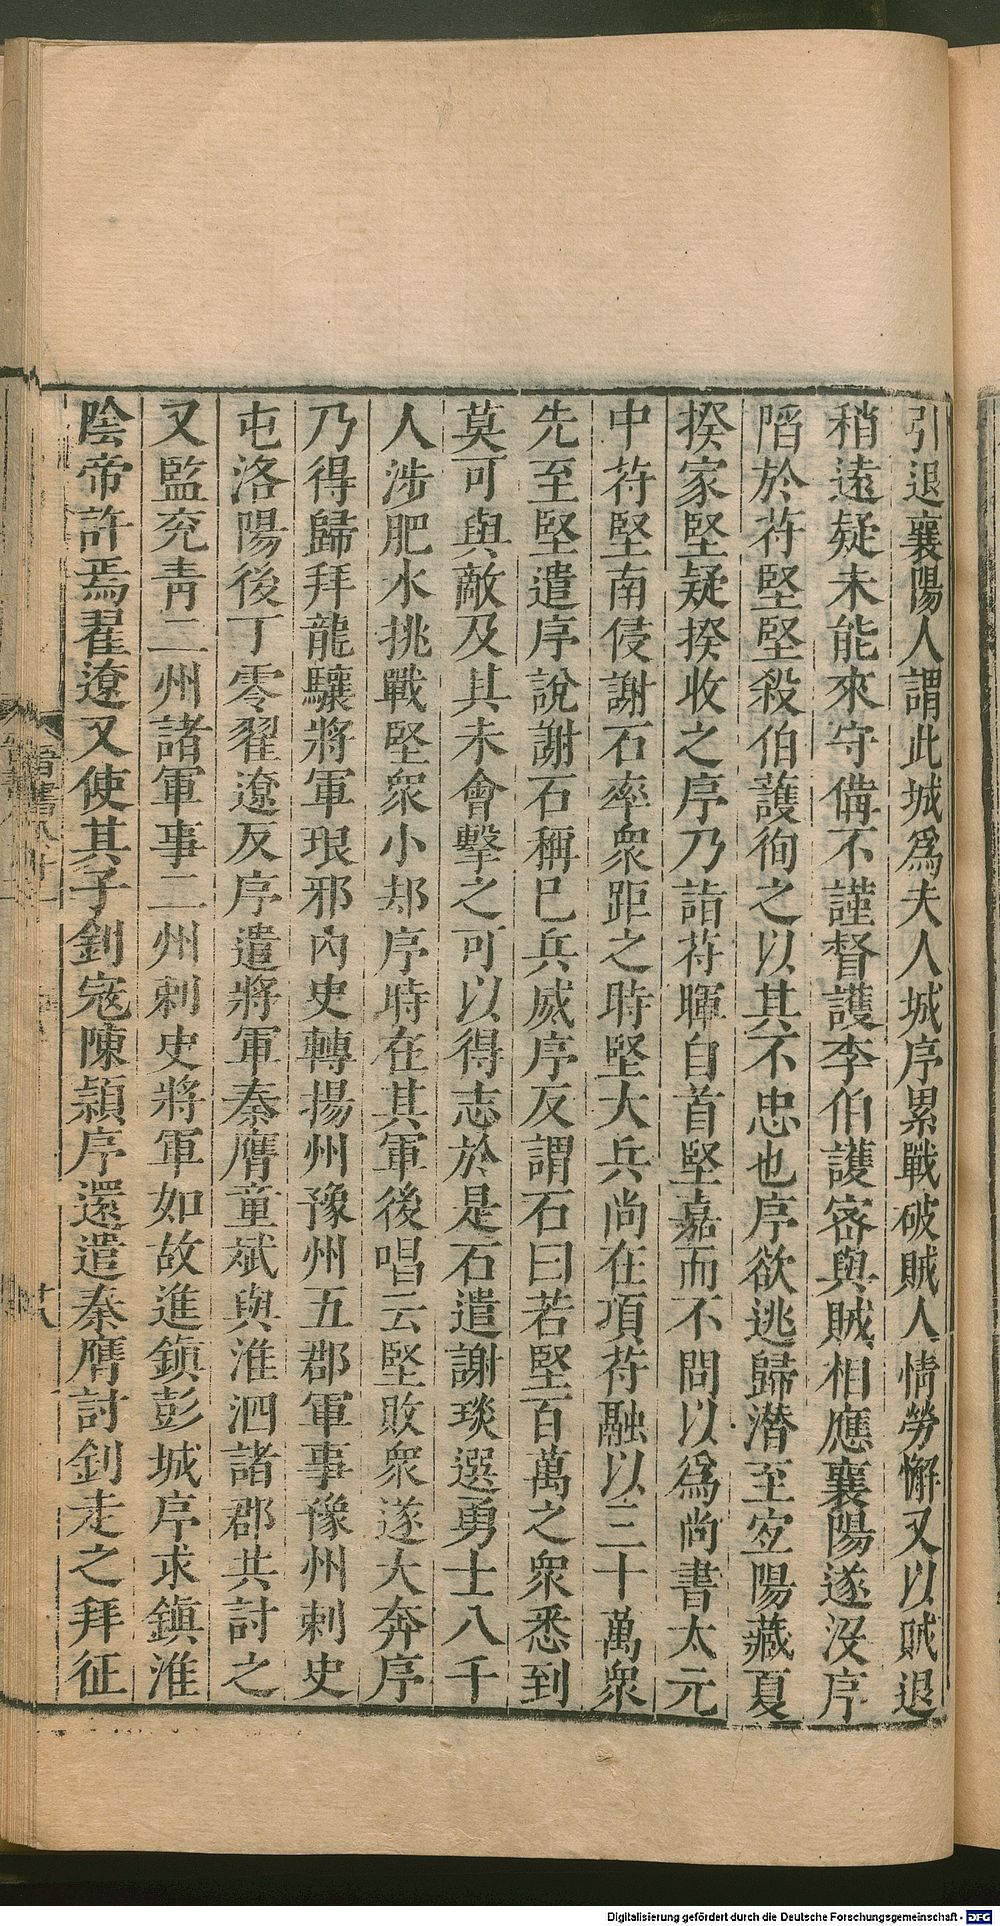 引退襄陽人謂此城爲夫人城序累戰破賊人情勞懈又以賊退
稍遠疑未能來守備不謹督護李伯護密與賊相應襄陽遂沒序
陷於苻堅堅殺伯護徇之以其不忠也序欲逃歸潛至宜陽藏夏
揆家堅疑揆收之序乃詣苻暉自首堅嘉而不問以爲尚書太元
中苻堅南侵謝石率衆距之時堅大兵尚在項苻融以三十萬衆
先至堅遣序說謝石稱己兵威序反謂石曰若堅百萬之衆悉到
莫可與敵及其未會擊之可以得志於是石遣謝琰選勇士八千
人涉肥水挑戰堅衆小却序時在其軍後唱云堅敗衆遂大奔序
乃得歸拜龍驤將軍琅邪內史轉揚州豫州五郡軍事豫州刺史
屯洛陽後丁零翟遼反序遣將軍秦膺童斌與淮泗諸郡共討之
又監兖青二州諸軍事二州刺史將軍如故進鎭彭城序求鎭淮
陰帝許焉翟遼又使其子釗寇陳潁序還遣秦膺討釗走之拜征
晋書
十八
Digitalisierung gefördert durch die Deutsche Forschungsgemeinschaft - DFG